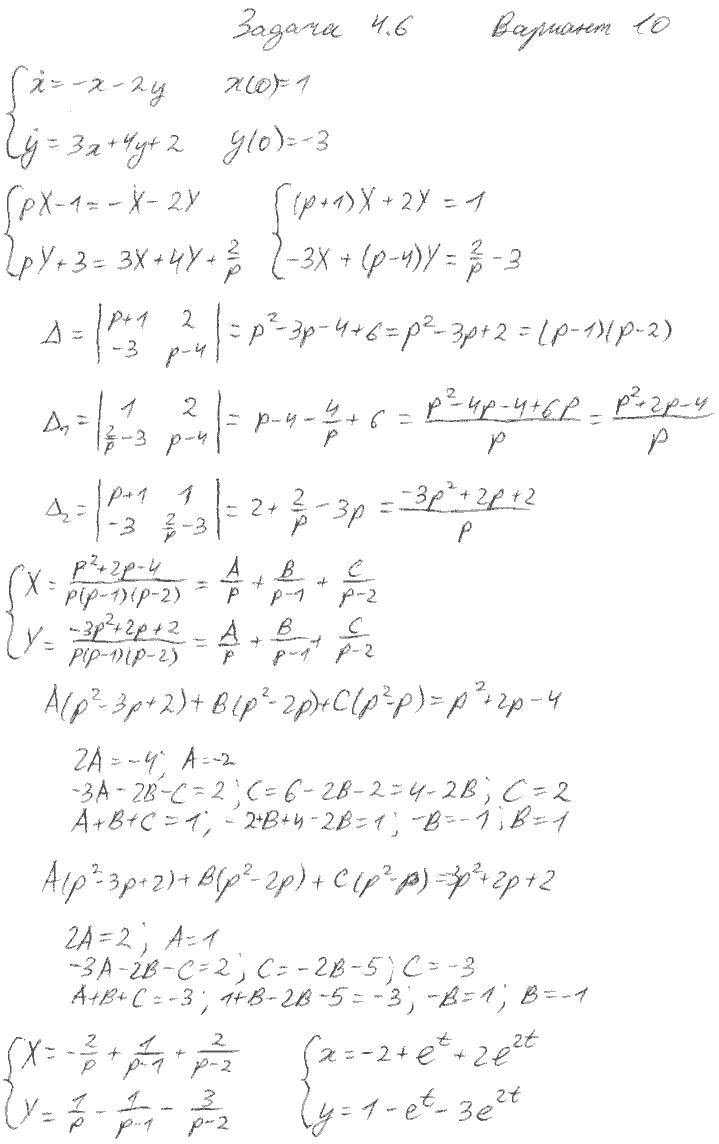 Задача 4.6 Вариант 10
{ẋ = -x - 2y x(0)=1
{ẏ = 3x+4y+2 y(0)=-3
{pX-1 = -X - 2Y {(p+1)X + 2Y = 1
{pY+3 = 3X+4Y+2/p {-3X + (p-4)Y = 2/p - 3
Δ = |p+1 2; -3 p-4| = p²-3p-4+6 = p²-3p+2 = (p-1)(p-2)
Δ₁ = |1 2; 2/p-3 p-4| = p-4-4/p+6 = (p²-4p-4+6p)/p = (p²+2p-4)/p
Δ₂ = |p+1 1; -3 2/p-3| = 2+2/p-3p = (-3p²+2p+2)/p
{X = (p²+2p-4)/(p(p-1)(p-2)) = A/p + B/(p-1) + C/(p-2)
{Y = (-3p²+2p+2)/(p(p-1)(p-2)) = A/p + B/(p-1) + C/(p-2)
A(p²-3p+2)+B(p²-2p)+C(p²-p) = p²+2p-4
2A = -4; A = -2
-3A-2B-C = 2; C = 6-2B-2 = 4-2B; C = 2
A+B+C = 1; -2+B+4-2B = 1; -B = -1; B = 1
A(p²-3p+2)+B(p²-2p)+C(p²-p) = -3p²+2p+2
2A = 2; A = 1
-3A-2B-C = 2; C = -2B-5; C = -3
A+B+C = -3; 1+B-2B-5 = -3; -B = 1; B = -1
{X = -2/p + 1/(p-1) + 2/(p-2) {x = -2+e^t+2e^2t
{Y = 1/p - 1/(p-1) - 3/(p-2) {y = 1-e^t-3e^2t